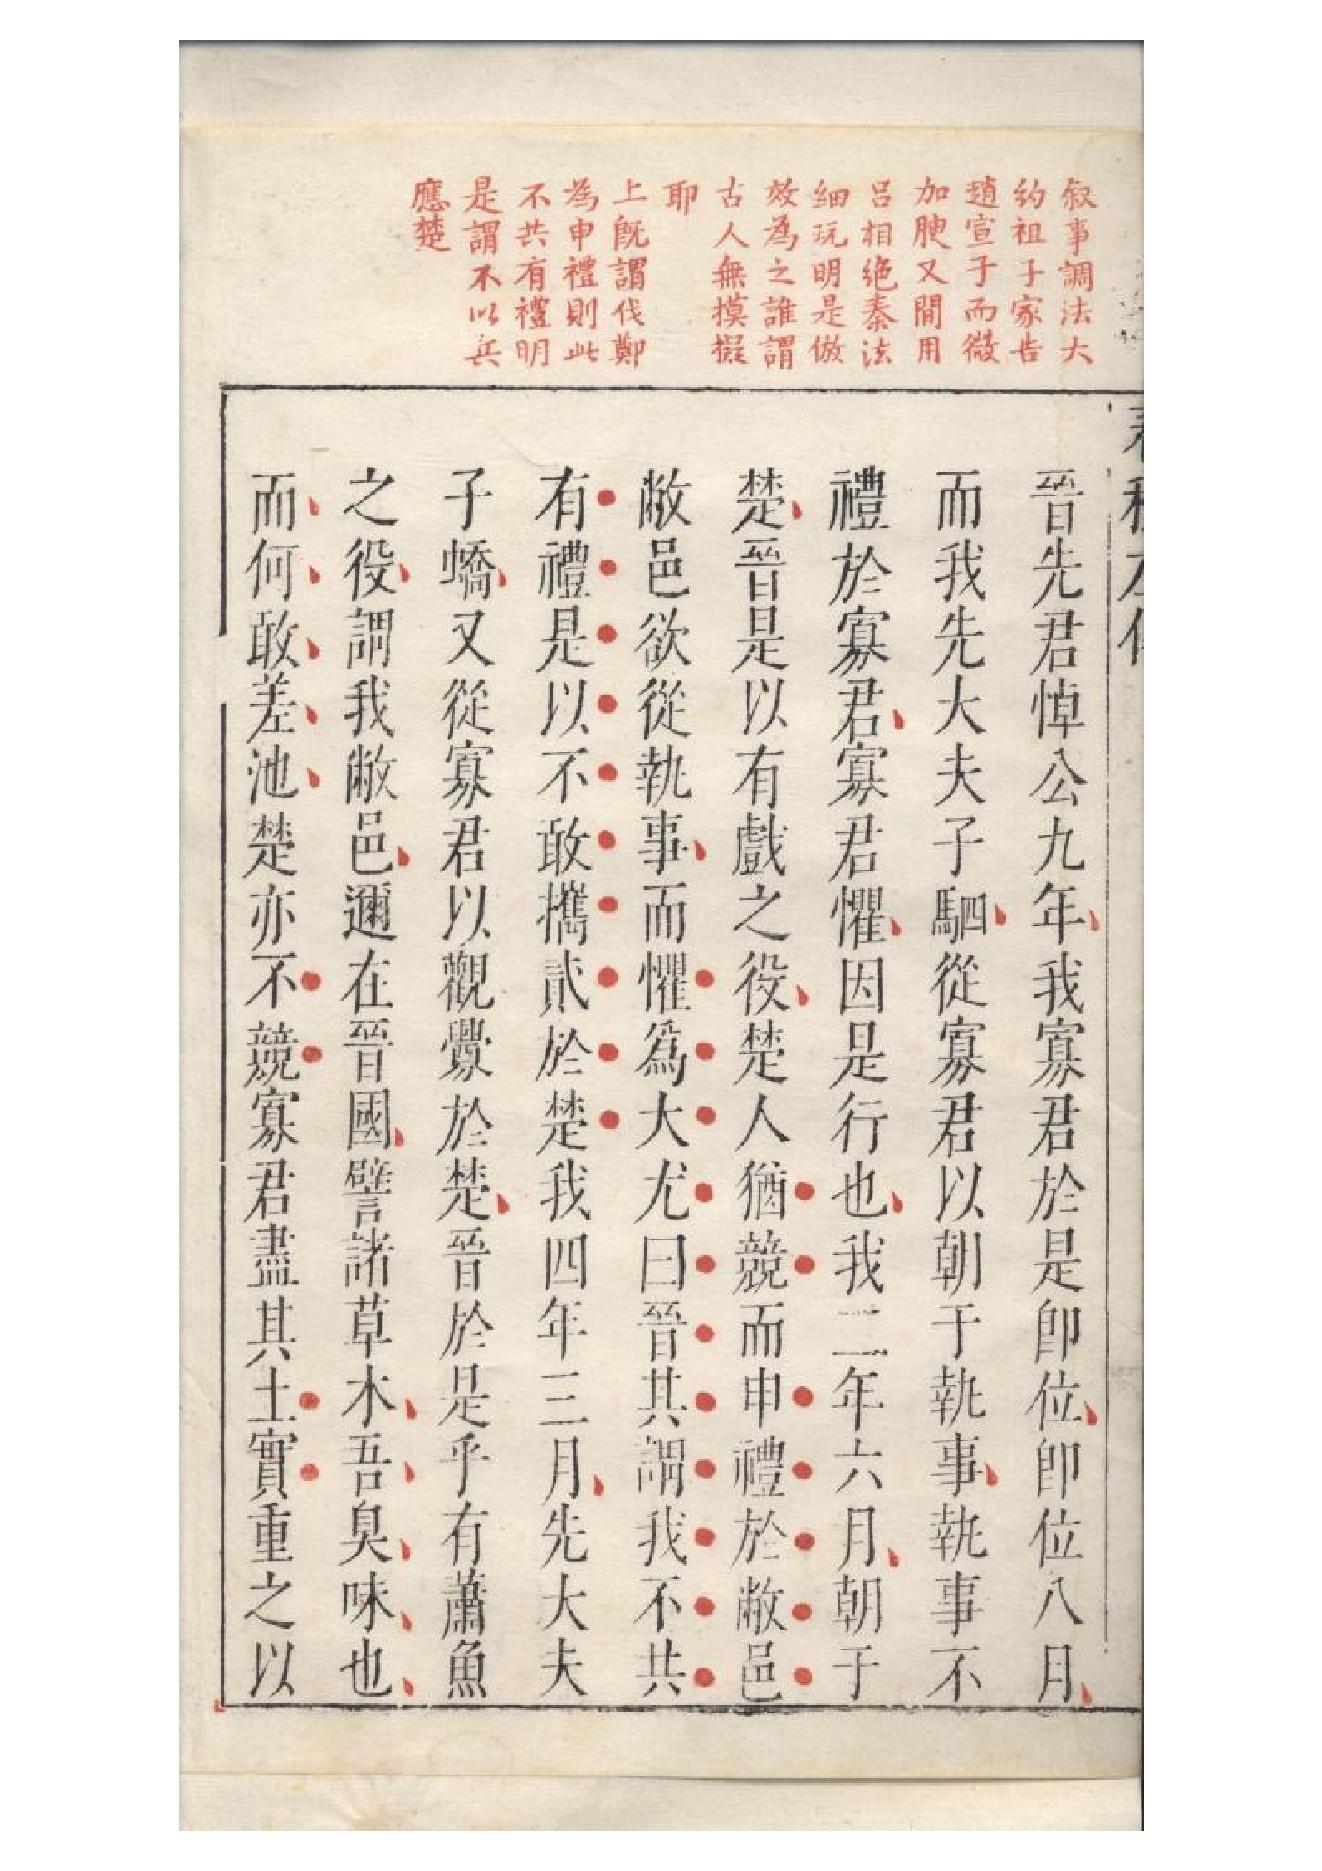 叙事調法大
約祖子家告
趙宣子而微
加腴又間用
呂相絶秦法
細玩明是倣
效為之誰謂
古人無摸擬
耶
上既謂伐鄭
為申禮則此
不共有禮明
是謂不以兵
應楚
晉先君悼公九年我寡君於是卽位卽位八月
而我先大夫子駟從寡君以朝于執事執事不
禮於寡君寡君懼因是行也我二年六月朝于
楚晉是以有戲之役楚人猶競而申禮於敝邑
敝邑欲從執事而懼爲大尤曰晉其謂我不共
有禮是以不敢攜貳於楚我四年三月先大夫
子蟜又從寡君以觀釁於楚晉於是乎有蕭魚
之役謂我敝邑邇在晉國譬諸草木吾臭味也
而何敢差池楚亦不競寡君盡其土實重之以